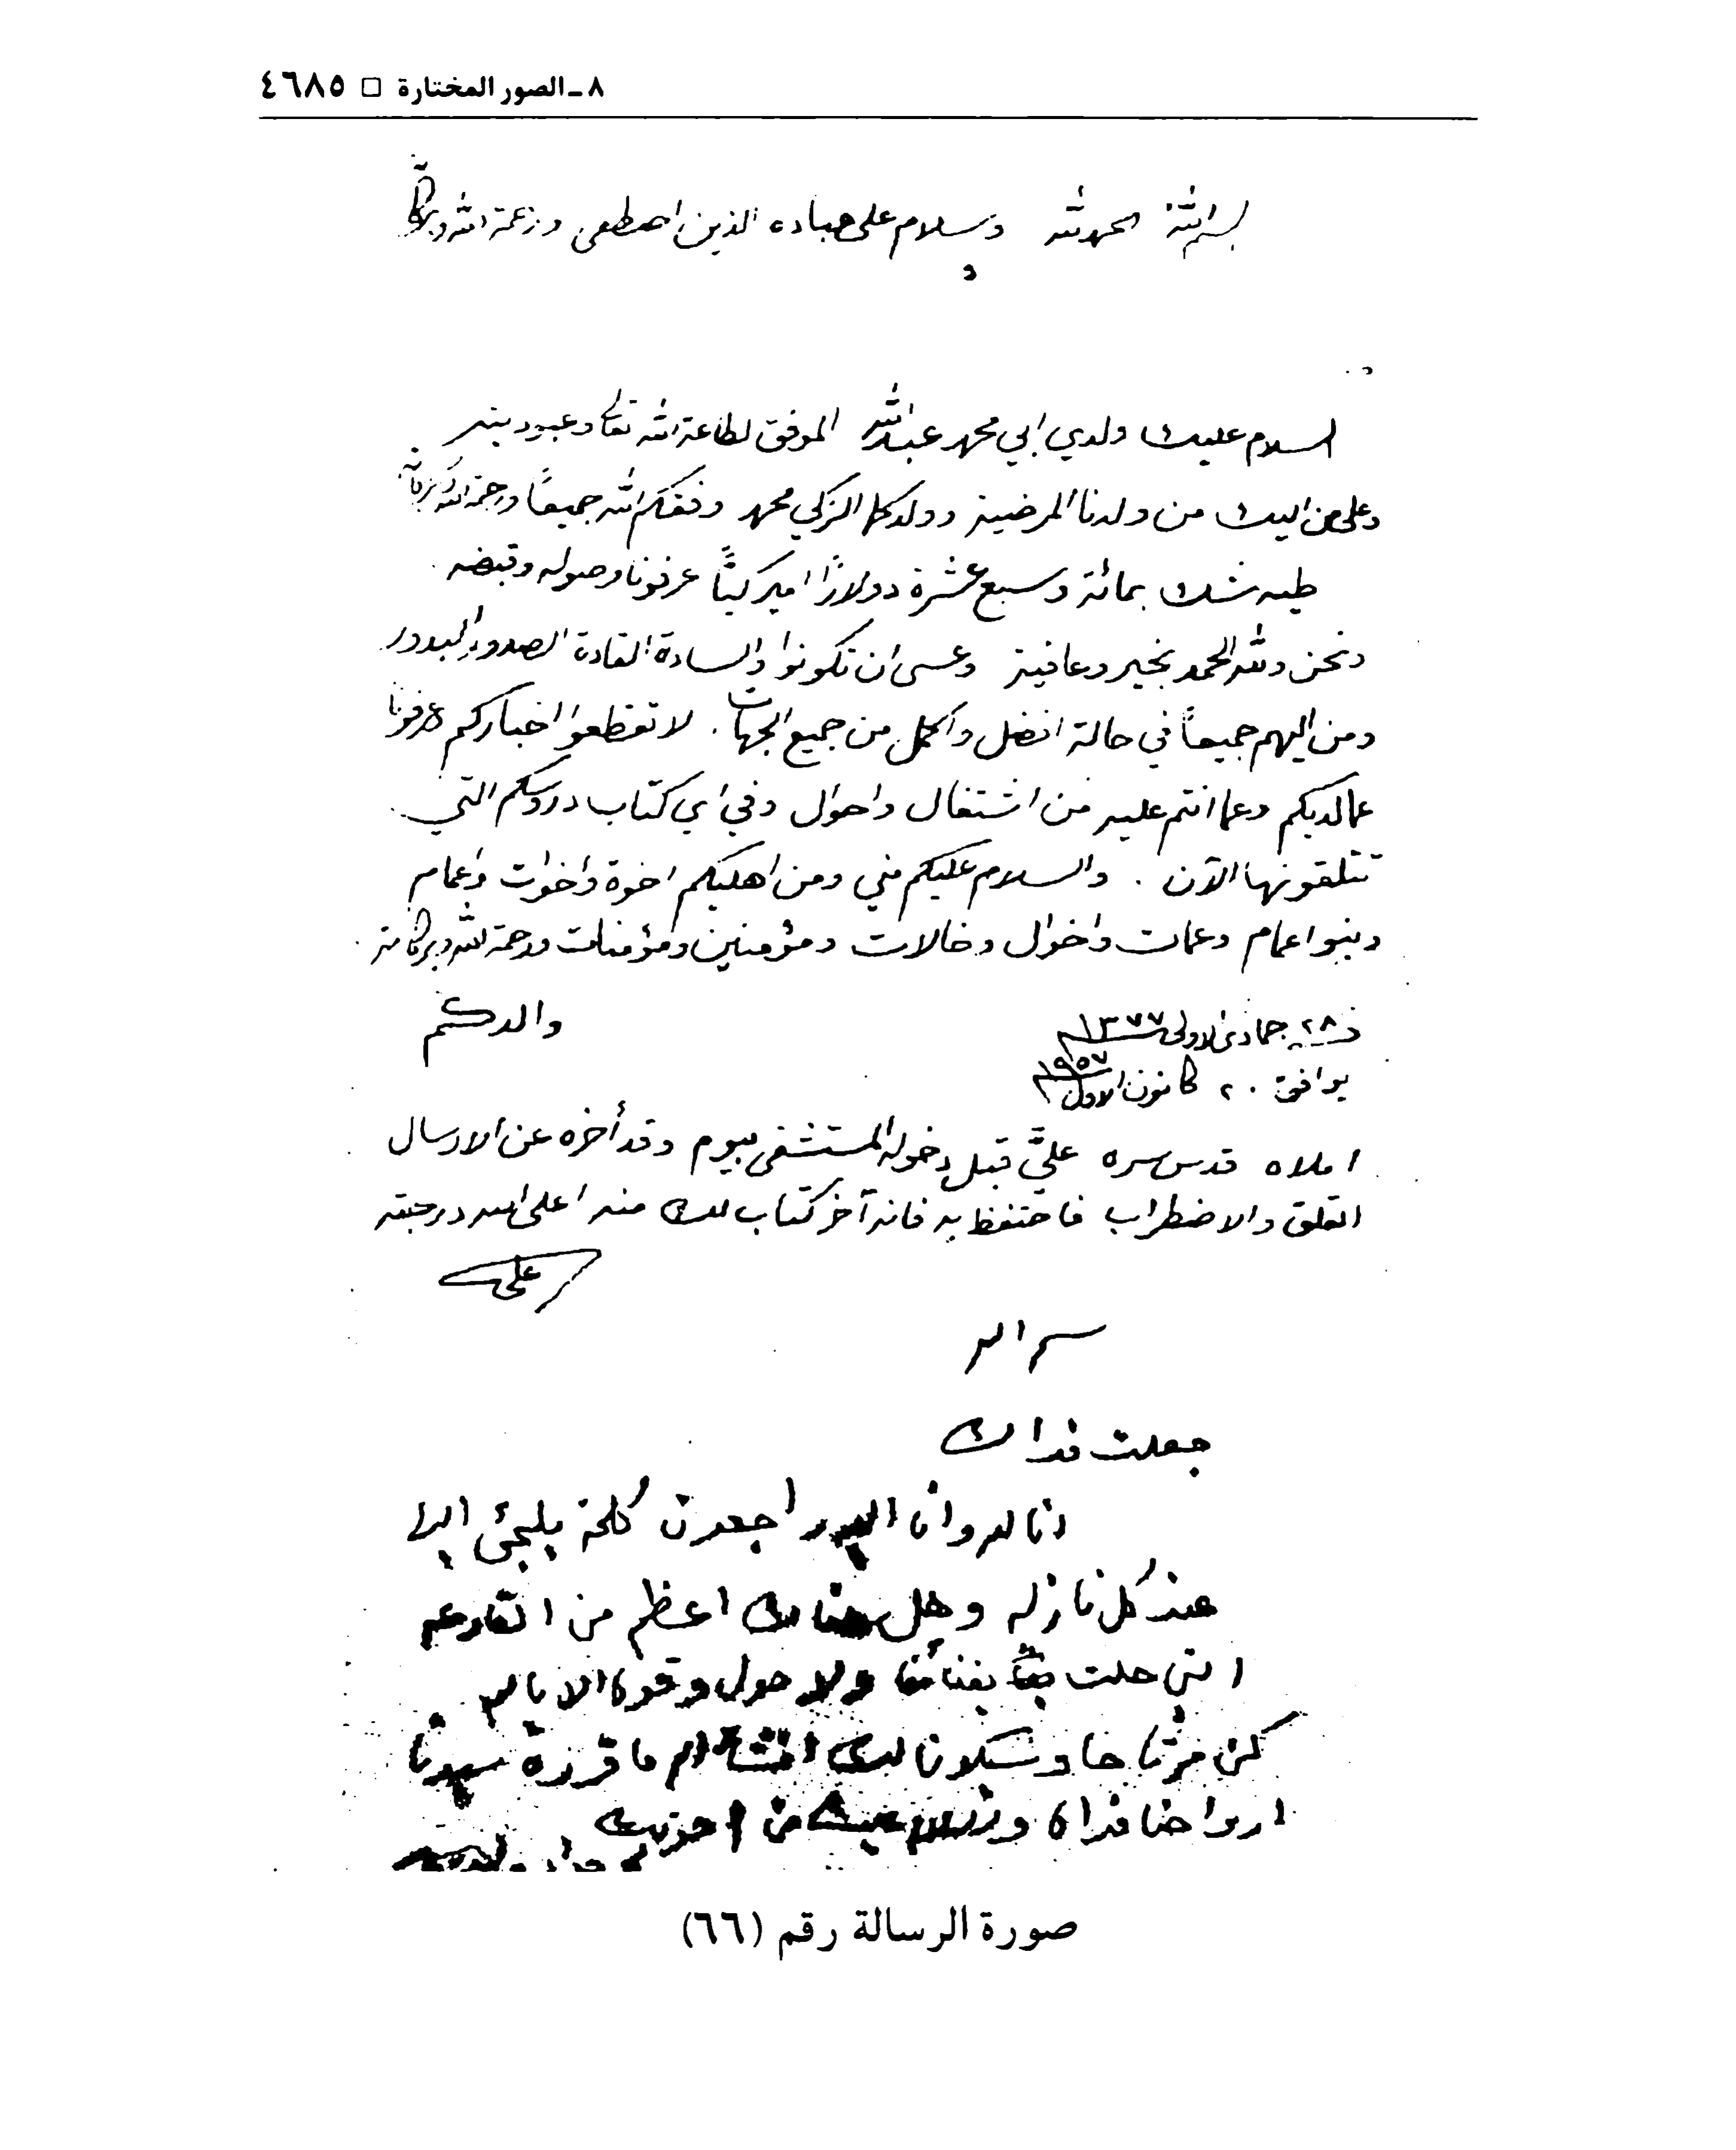 ٨ ـ الصور المختارة □ ٤٦٨٥
بسم الله الحمد لله وسلام على عباده الذين اصطفى ورحمة الله وبركاته
السلام عليك ولدي ابي محمد عبدالله الموفق لطاعة الله تعالى وعبوديته
وعلى من اليك من ولدنا المرضية وولدكما الزكي محمد وفقكم الله جميعاً ورحمة الله وبركاته
طيه شك بمائة وسبع عشرة دولاراً اميركيًا عرفونا وصوله وقبضه
ونحن ولله الحمد بخير وعافية وعسى ان تكونوا والسادة القادة الصدور البدور
ومن اليهم جميعاً في حالة افضل واكمل من جميع الجهات. لا تقطعوا اخباركم عرفونا
عما لديكم وعما انتم عليه من اشتغال واحوال وفي اي كتاب دروسكم التي
تتلقونها الآن. والسلام عليكم مني ومن اهليكم اخوة واخوات واعمام
وبنوا اعمام وعمات واخوال وخالات ومؤمنين ومؤمنات ورحمة الله وبركاته
في ٢٨ جمادى الاولى ١٣٧٧ والدكم
يوافق ٢٠ كانون الاول ١٩٥٧
املاه قدس سره عليَّ قبل دخوله المستشفى بيوم وقد أخره عن الارسال
القلق والاضطراب فاحتفظ به فانه آخر كتاب لك منه اعلى الله درجته
علي
بسم الله
جعلت فداك
انا لله وانا اليه راجعون كلمة يلجئ اليها
عند كل نازلة وهل هناك اعظم من القارعة
التي حلت بفنائنا ولا حول ولا قوة الا بالله
ما قرره سيدنا
ارواحنا فداه
صورة الرسالة رقم (٦٦)